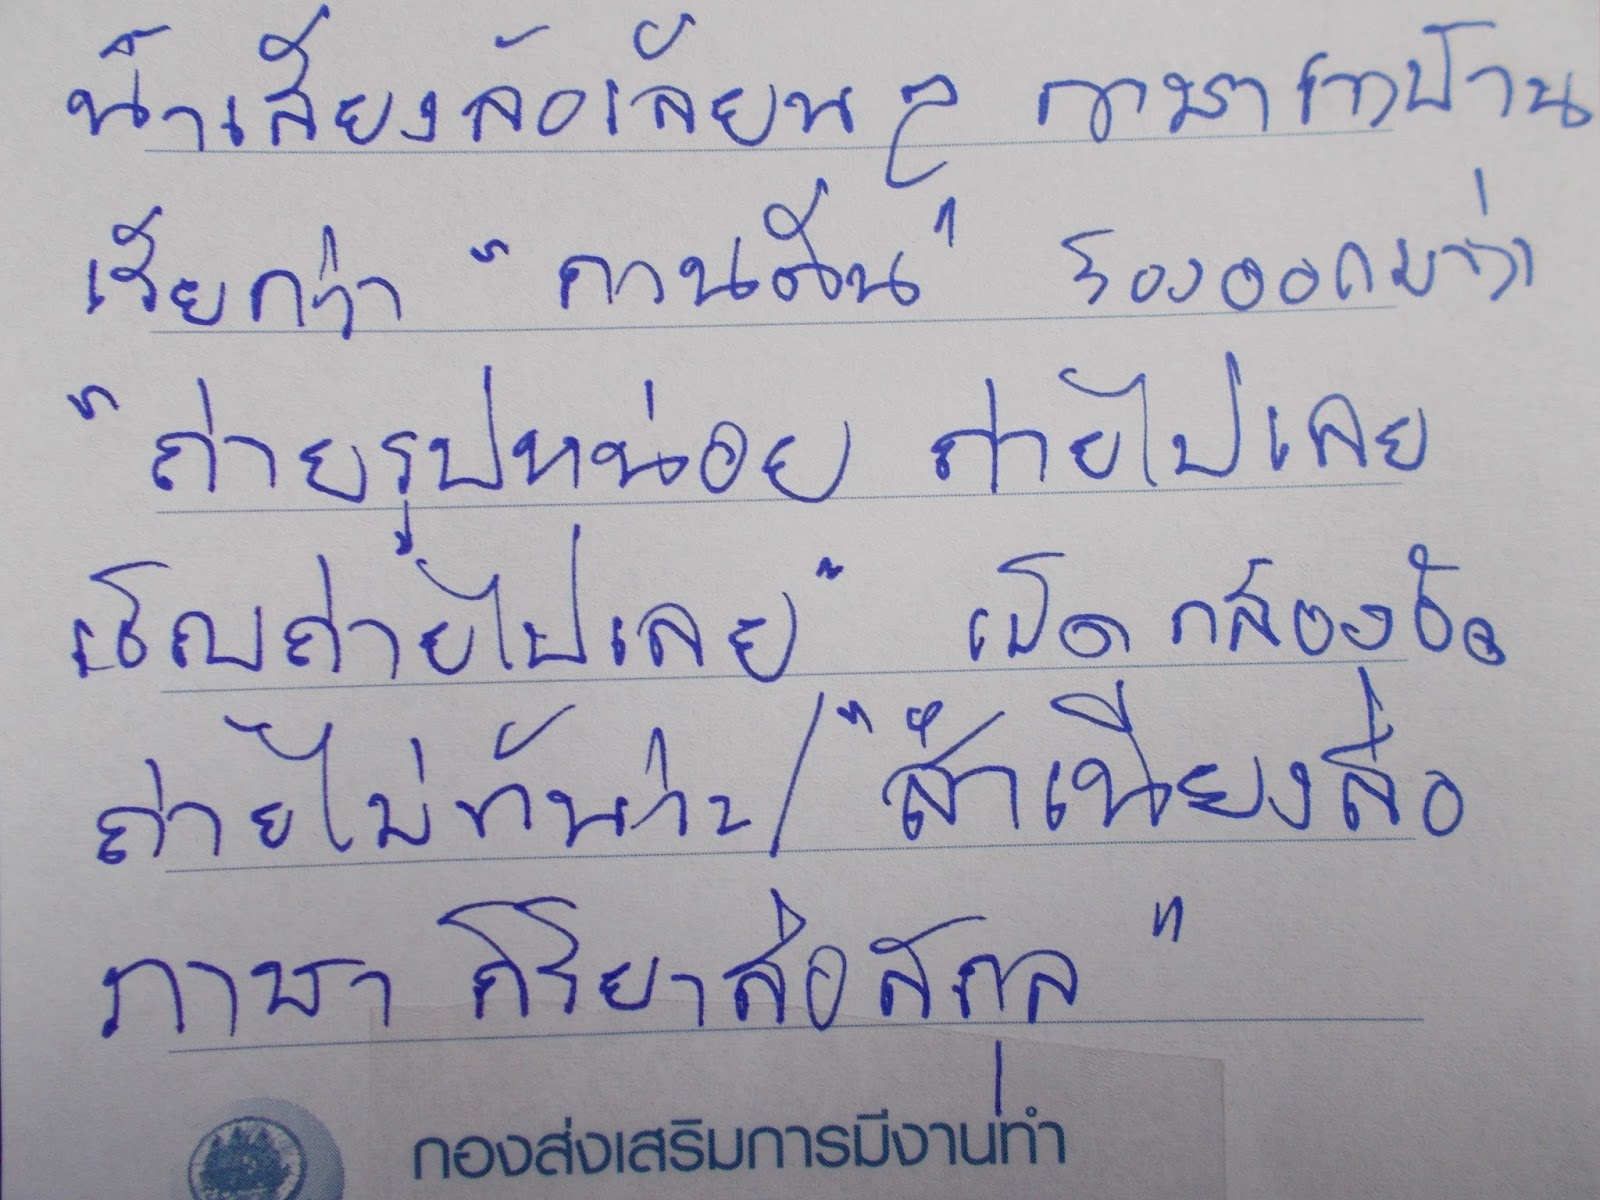 น้ำเสียงล้อเลียน ๆ ภาษาชาวบ้าน
เรียกว่า " กวนตีน" ร้องออกมาว่า
"ถ่ายรูปหน่อย ถ่ายไปเลย
เชิญถ่ายไปเลย" เปิดกล้อง
ถ่ายไม่ทันน่ะ/ "สำเนียงสื่อ
ภาษา กิริยาส่อสกุล"
กองส่งเสริมการมีงานทำ